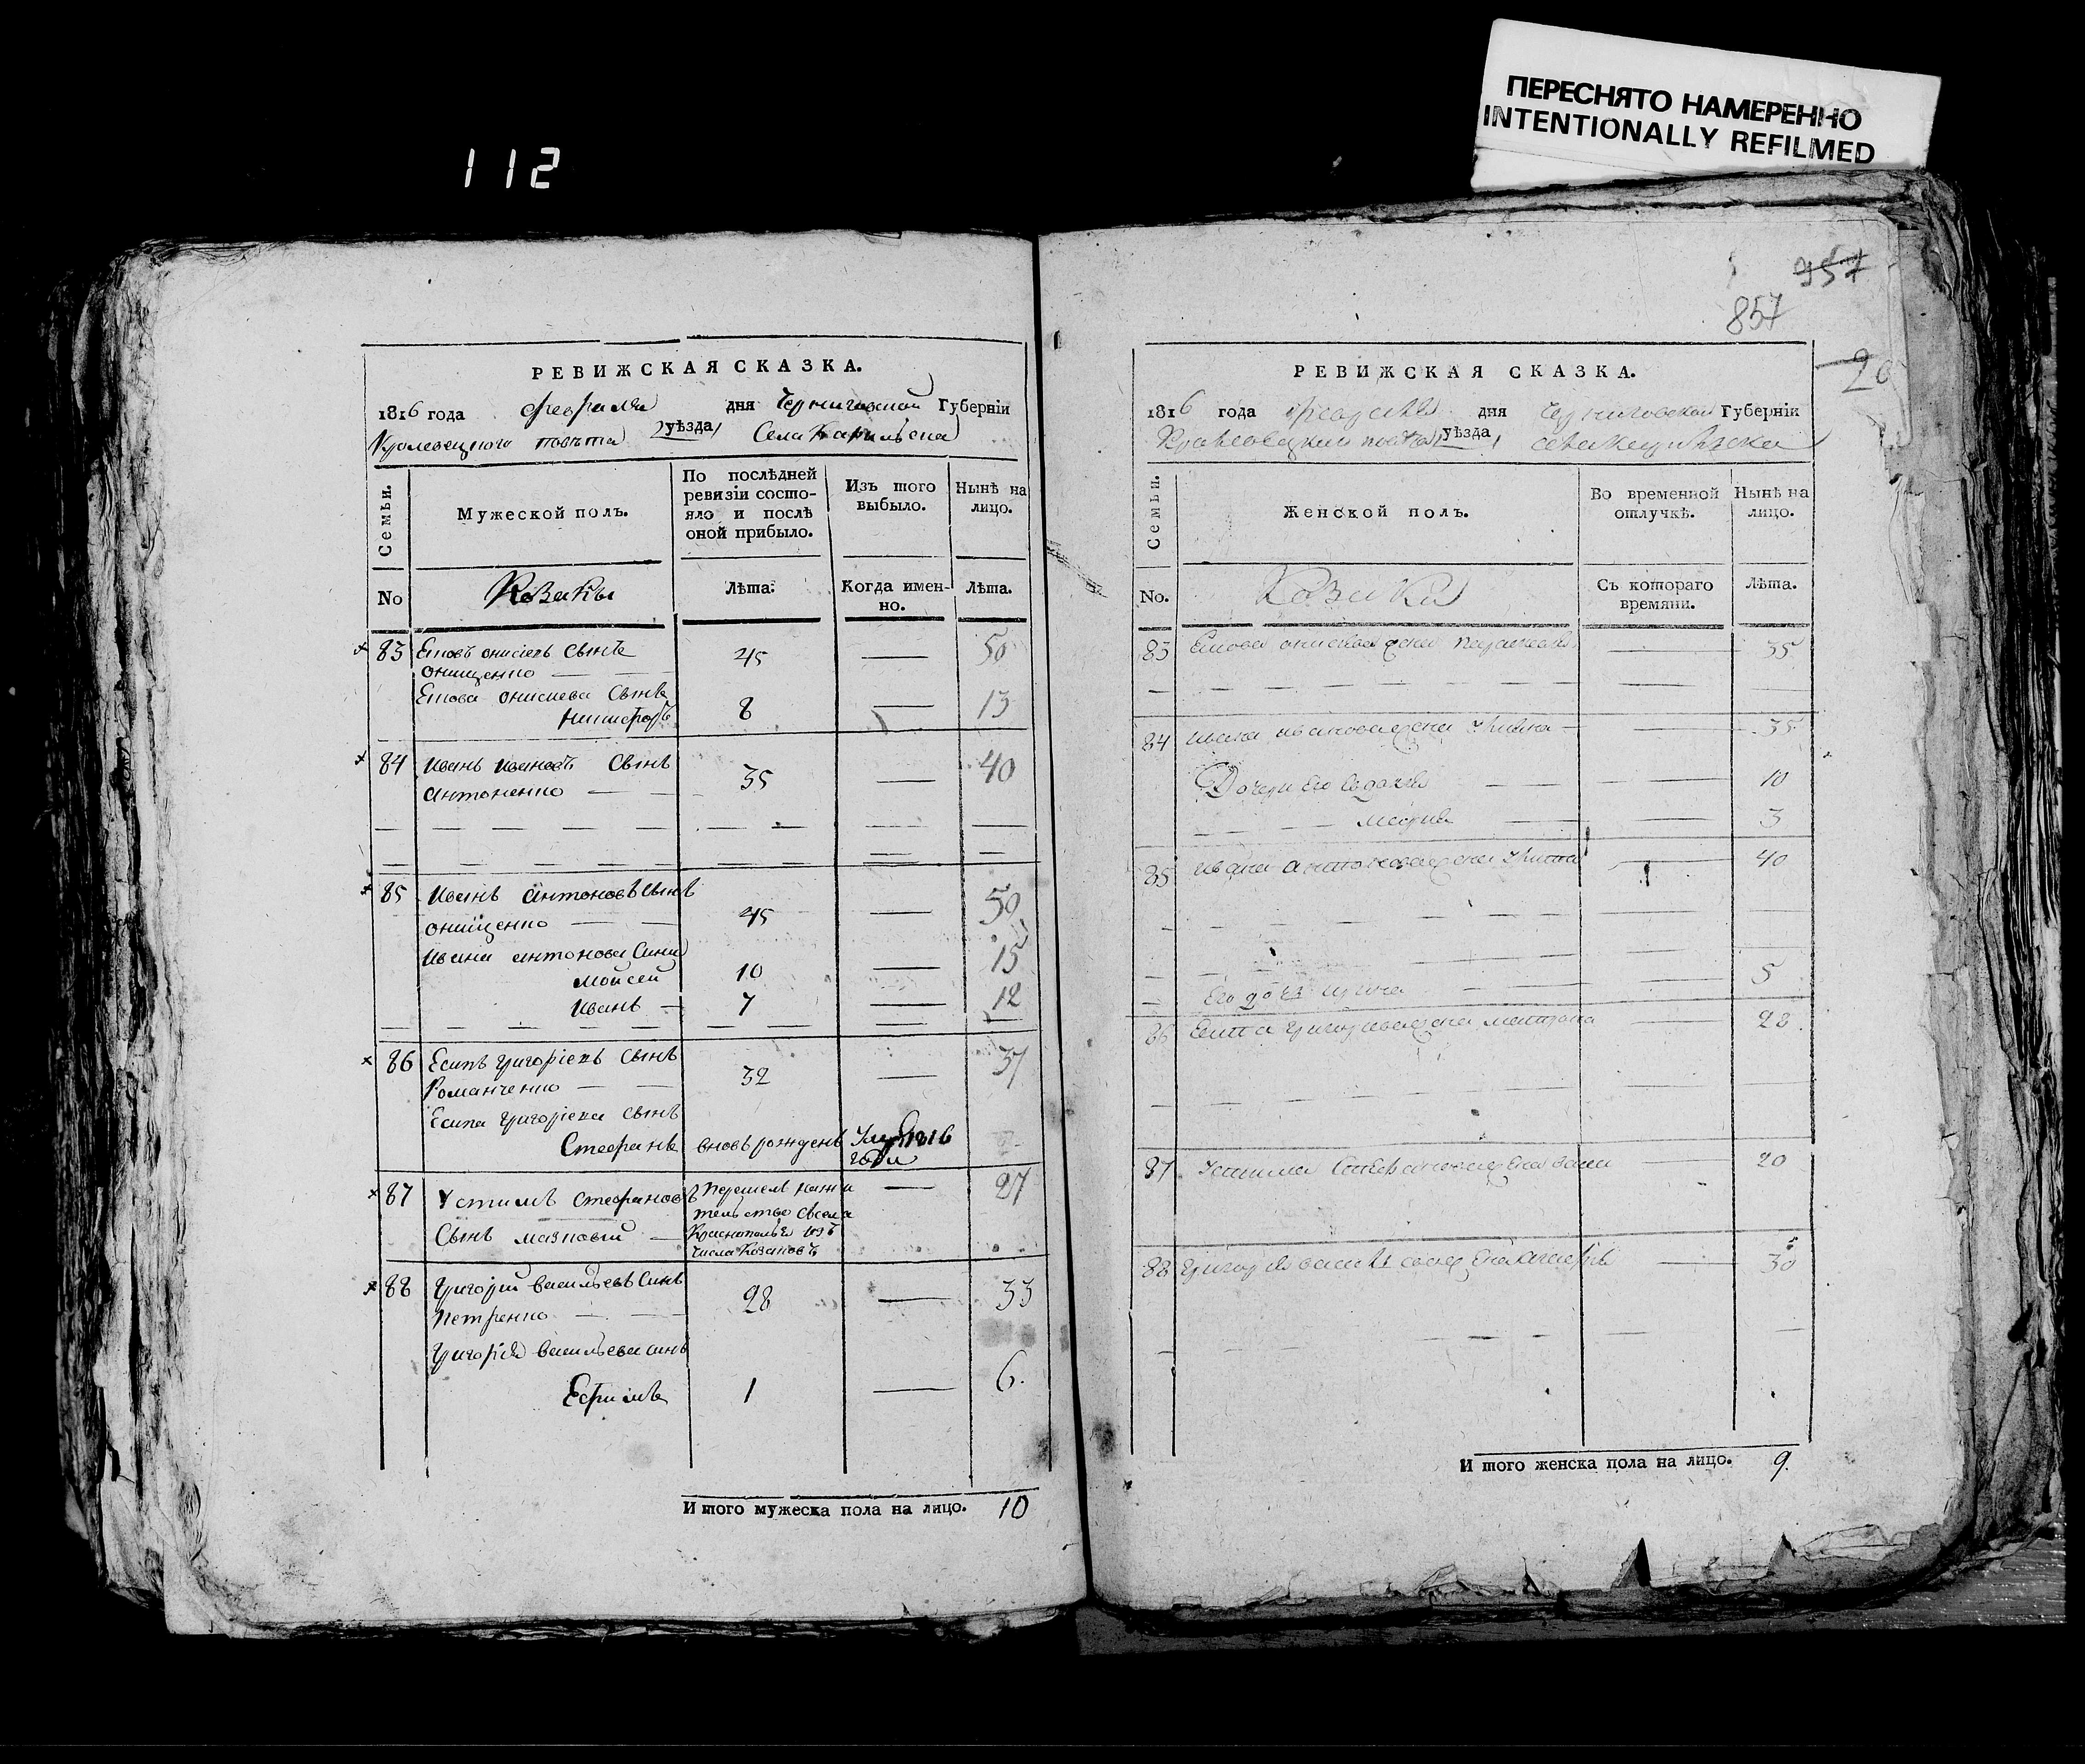 ПЕРЕСНЯТО НАМЕРЕННО
INTENTIONALLY REFILMED
112
957
857
20
РЕВИЖСКАЯ СКАЗКА.
1816 года февраля дня Черниговской Губерніи
Кролевецкого повѣта уѣзда, Села
Семьи.
Мужеской полъ.
По послѣдней
ревизіи состо-
яло и послѣ
оной прибыло.
Изъ того
выбыло.
Нынѣ на
лицо.
No Козаки Лѣта. Когда имен-
но. Лѣта.
83 онисіевъ Сынъ 45 — 50
онищенко — —
онисиева Сынъ
Никифоръ 8 — 13
84 Иванъ Ивановъ Сынъ 35 — 40
Антоненко — —
85 Иванъ Антоновъ Сынъ
онищенко — — 45 — 50
Ивана антонова Сини
Мойсей 10 — 15
Иванъ — 7 — 12
86 Есипъ григоріевъ Сынъ 32 — 37
Романченко — —
Есипа григоріева Сынъ
Стефанъ вновъ рожденъ 1816
года
87 Устимъ Стефановъ Перешелъ на жи — 27
телство Съсела
Сынъ мазновый — Краснополья изъ
числа Козаковъ
88 Григорій васильевъ Синъ 28 — 33
Петренко — —
Григорія васильева синъ
Ефимъ 1 — 6.
И того мужеска пола на лицо. 10
РЕВИЖСКАЯ СКАЗКА.
1816 года февраля дня Черниговской Губерніи
Кролевецкого повѣта уѣзда,
Семьи.
Женской полъ.
Во временной
отлучкѣ.
Нынѣ на
лицо.
No. Козаки Съ котораго
времяни. Лѣта.
83 жена — 35
84 Ивана иванова жена — 35
Дочери Его — — 10
— — 3
85 Ивана Антонова жена — 40
Его дочь — 5
86 Есипа григориева жена — 28.
87 Устима Стефанова жена — 20
88 Григорія жена — 30
И того женска пола на лицо. 9.